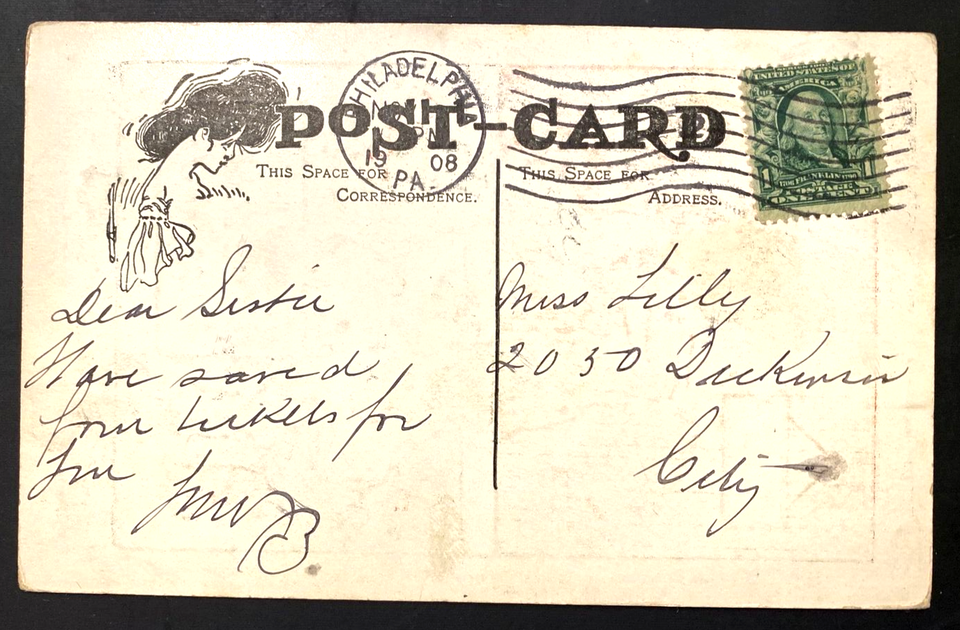 POST-CARD
PHILADELPHIA
PA.
19 08
THIS SPACE FOR
CORRESPONDENCE.
THIS SPACE FOR
ADDRESS.
UNITED STATES OF
AMERICA
1 1
ONE CENT
Dear Sister
Have saved
four tickets for
you
Miss Lilly
2030 Dickinson
City